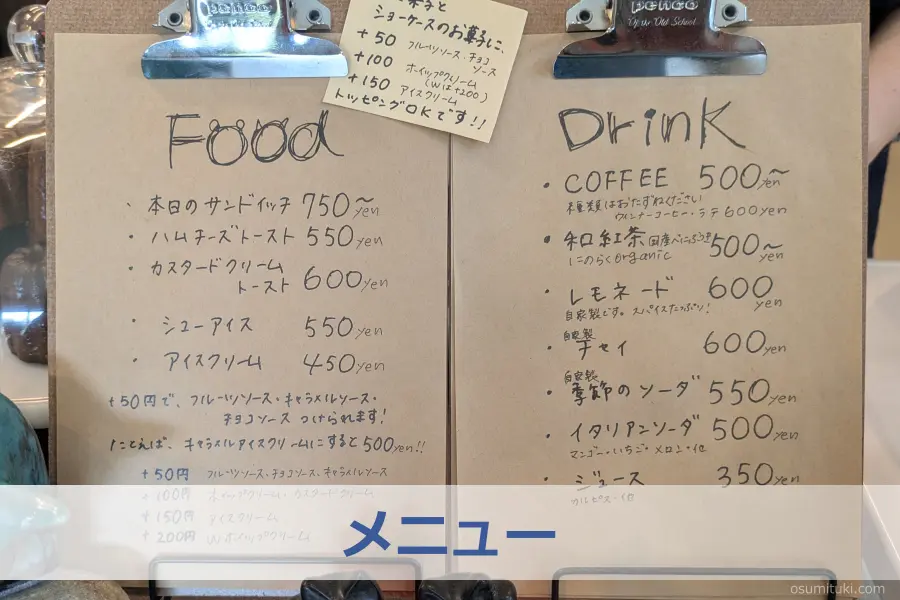 penco
ショーケースのお菓子に、
+50 フルーツソース・チョコ
ソース
+100 ホイップクリーム
(Wは+200)
+150 アイスクリーム
トッピングOKです!!
Food
・本日のサンドイッチ 750~yen
・ハムチーズトースト 550yen
・カスタードクリーム
トースト 600yen
・シューアイス 550yen
・アイスクリーム 450yen
+50円で、フルーツソース・キャラメルソース・
チョコソース つけられます!
たとえば、キャラメルアイスクリームにすると500yen!!
+50円 フルーツソース・チョコソース、キャラメルソース
+100円 ホイップクリーム・カスタードクリーム
+150円 アイスクリーム
+200円 Wホイップクリーム
penco
Drink
・COFFEE 500~yen
種類はおたずねください
ウィンナーコーヒー・ラテ600yen
・和紅茶 国産べにふうき 500~yen
organic
・レモネード 600yen
自家製です。スパイスたっぷり!
自家製
・チャイ 600yen
自家製
・季節のソーダ 550yen
・イタリアンソーダ 500yen
マンゴー・いちご・メロン・他
・ジュース 350yen
カルピス・他
メニュー
osumituki.com